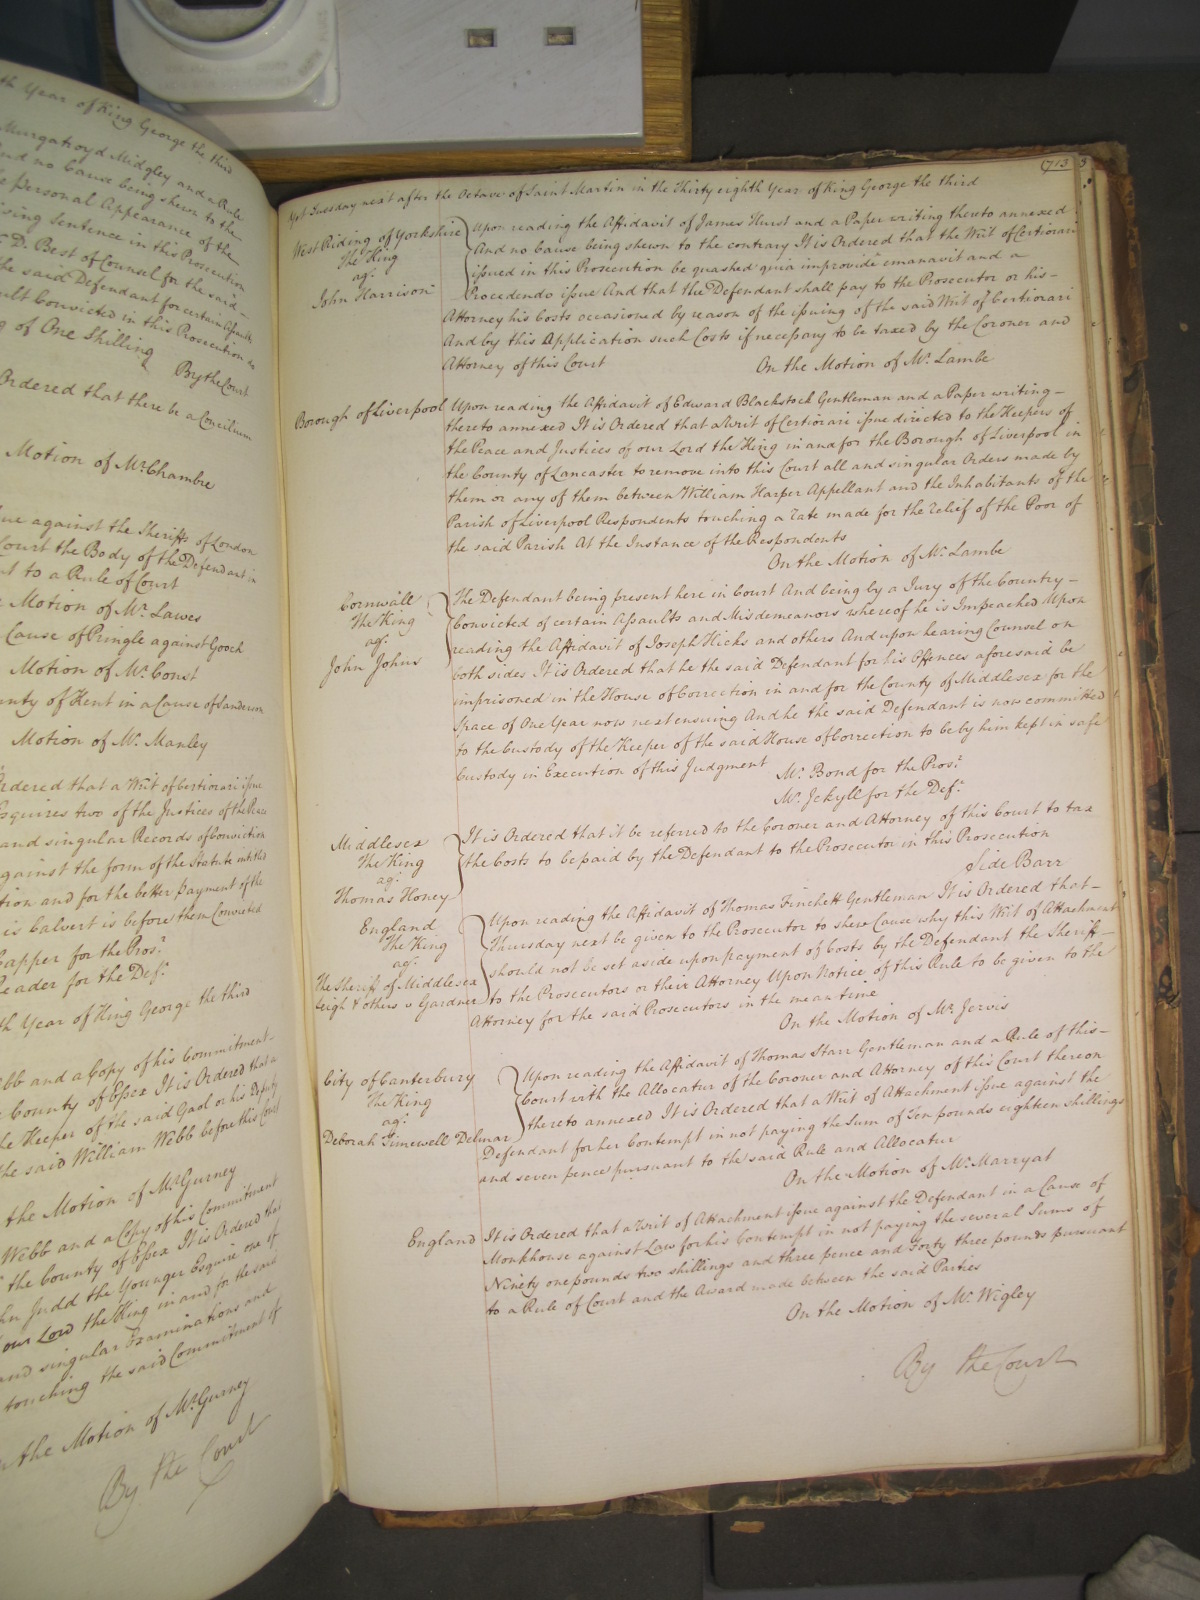 th Year of King George the third
Murgatroyd Midgley and a Rule
And no Cause being shewn to the
Personal Appearance of the
Sentence in this Prosecution
D. Best of Counsel for the said
the said Defendant for certain Assault
Convicted in this Prosecution
of One Shilling
By the Court
Ordered that there be a Concilium
Motion of Mr. Chambre
against the Sheriffs of London
Court the Body of the Defendant in
to a Rule of Court
Motion of Mr. Lawes
Cause of Pringle against Gooch
Motion of Mr. Const
of Kent in a Cause of Sanderson
Motion of Mr. Manley
Ordered that a Writ of Certiorari issue
Esquires two of the Justices of the Peace
and singular Records of Conviction
against the form of the Statute intitled
and for the better payment of the
is Calvert is before them Convicted
for the Pros.r
for the Def.t
Year of King George the third
and a Copy of his Commitment
County of Essex It is Ordered that a
the Keeper of the said Gaol or his Deputy
the said William Webb before this Court
the Motion of Mr. Gurney
Webb and a Copy of his Commitment
the County of Essex It is Ordered that
Judd the Younger Esquire one of
our Lord the King in and for the said
and singular Examinations and
touching the said Commitment of
the Motion of Mr. Gurney
By the Court
713
Yet Tuesday next after the Octave of Saint Martin in the Thirty eighth Year of King George the third
West Riding of Yorkshire
The King
ag.t
John Harrison
Upon reading the Affidavit of James Hurst and a Paper writing thereto annexed
And no Cause being shewn to the contrary It is Ordered that the Writ of Certiorari
issued in this Prosecution be quashed quia improvide emanavit and a
Procedendo issue And that the Defendant shall pay to the Prosecutor or his
Attorney his Costs occasioned by reason of the issuing of the said Writ of Certiorari
And by this Application such Costs if necessary to be taxed by the Coroner and
Attorney of this Court
On the Motion of Mr. Lambe
Borough of Liverpool
Upon reading the Affidavit of Edward Blackstock Gentleman and a Paper writing
thereto annexed It is Ordered that a Writ of Certiorari issue directed to the Keepers of
the Peace and Justices of our Lord the King in and for the Borough of Liverpool in
the County of Lancaster to remove into this Court all and singular Orders made by
them or any of them between William Harper Appellant and the Inhabitants of the
Parish of Liverpool Respondents touching a rate made for the relief of the Poor of
the said Parish At the Instance of the Respondents
On the Motion of Mr. Lambe
Cornwall
The King
ag.t
John Johns
The Defendant being present here in Court And being by a Jury of the Country
Convicted of certain Assaults and Misdemeanors whereof he is Impeached Upon
reading the Affidavit of Joseph Hicks and others And upon hearing Counsel on
both sides It is Ordered that he the said Defendant for his Offences aforesaid be
imprisoned in the House of Correction in and for the County of Middlesex for the
Space of One Year now next ensuing And he the said Defendant is now committed
to the Custody of the Keeper of the said House of Correction to be by him kept in safe
Custody in Execution of this Judgment
Mr. Bond for the Pros.r
Mr. Jekyll for the Def.t
Middlesex
The King
ag.t
Thomas Honey
It is Ordered that it be referred to the Coroner and Attorney of this Court to tax
the Costs to be paid by the Defendant to the Prosecutor in this Prosecution
Side Barr
England
The King
ag.t
The Sheriff of Middlesex
Leigh & others v Gardner
Upon reading the Affidavit of Thomas Finchett Gentleman It is Ordered that
Thursday next be given to the Prosecutor to shew Cause why this Writ of Attachment
should not be set aside upon payment of Costs by the Defendant the Sheriff
to the Prosecutors or their Attorney Upon Notice of this Rule to be given to the
Attorney for the said Prosecutors in the mean time
On the Motion of Mr. Jervis
City of Canterbury
The King
ag.t
Deborah Timewell Delmar
Upon reading the Affidavit of Thomas Starr Gentleman and a Rule of this
Court with the Allocatur of the Coroner and Attorney of this Court thereon
thereto annexed It is Ordered that a Writ of Attachment issue against the
Defendant for her Contempt in not paying the Sum of Ten pounds eighteen shillings
and seven pence pursuant to the said Rule and Allocatur
On the Motion of Mr. Marryat
England
It is Ordered that a Writ of Attachment issue against the Defendant in a Cause of
Monkhouse against Law for his Contempt in not paying the several Sums of
Ninety one pounds two shillings and three pence and Forty three pounds pursuant
to a Rule of Court and the Award made between the said Parties
On the Motion of Mr. Wigley
By the Court